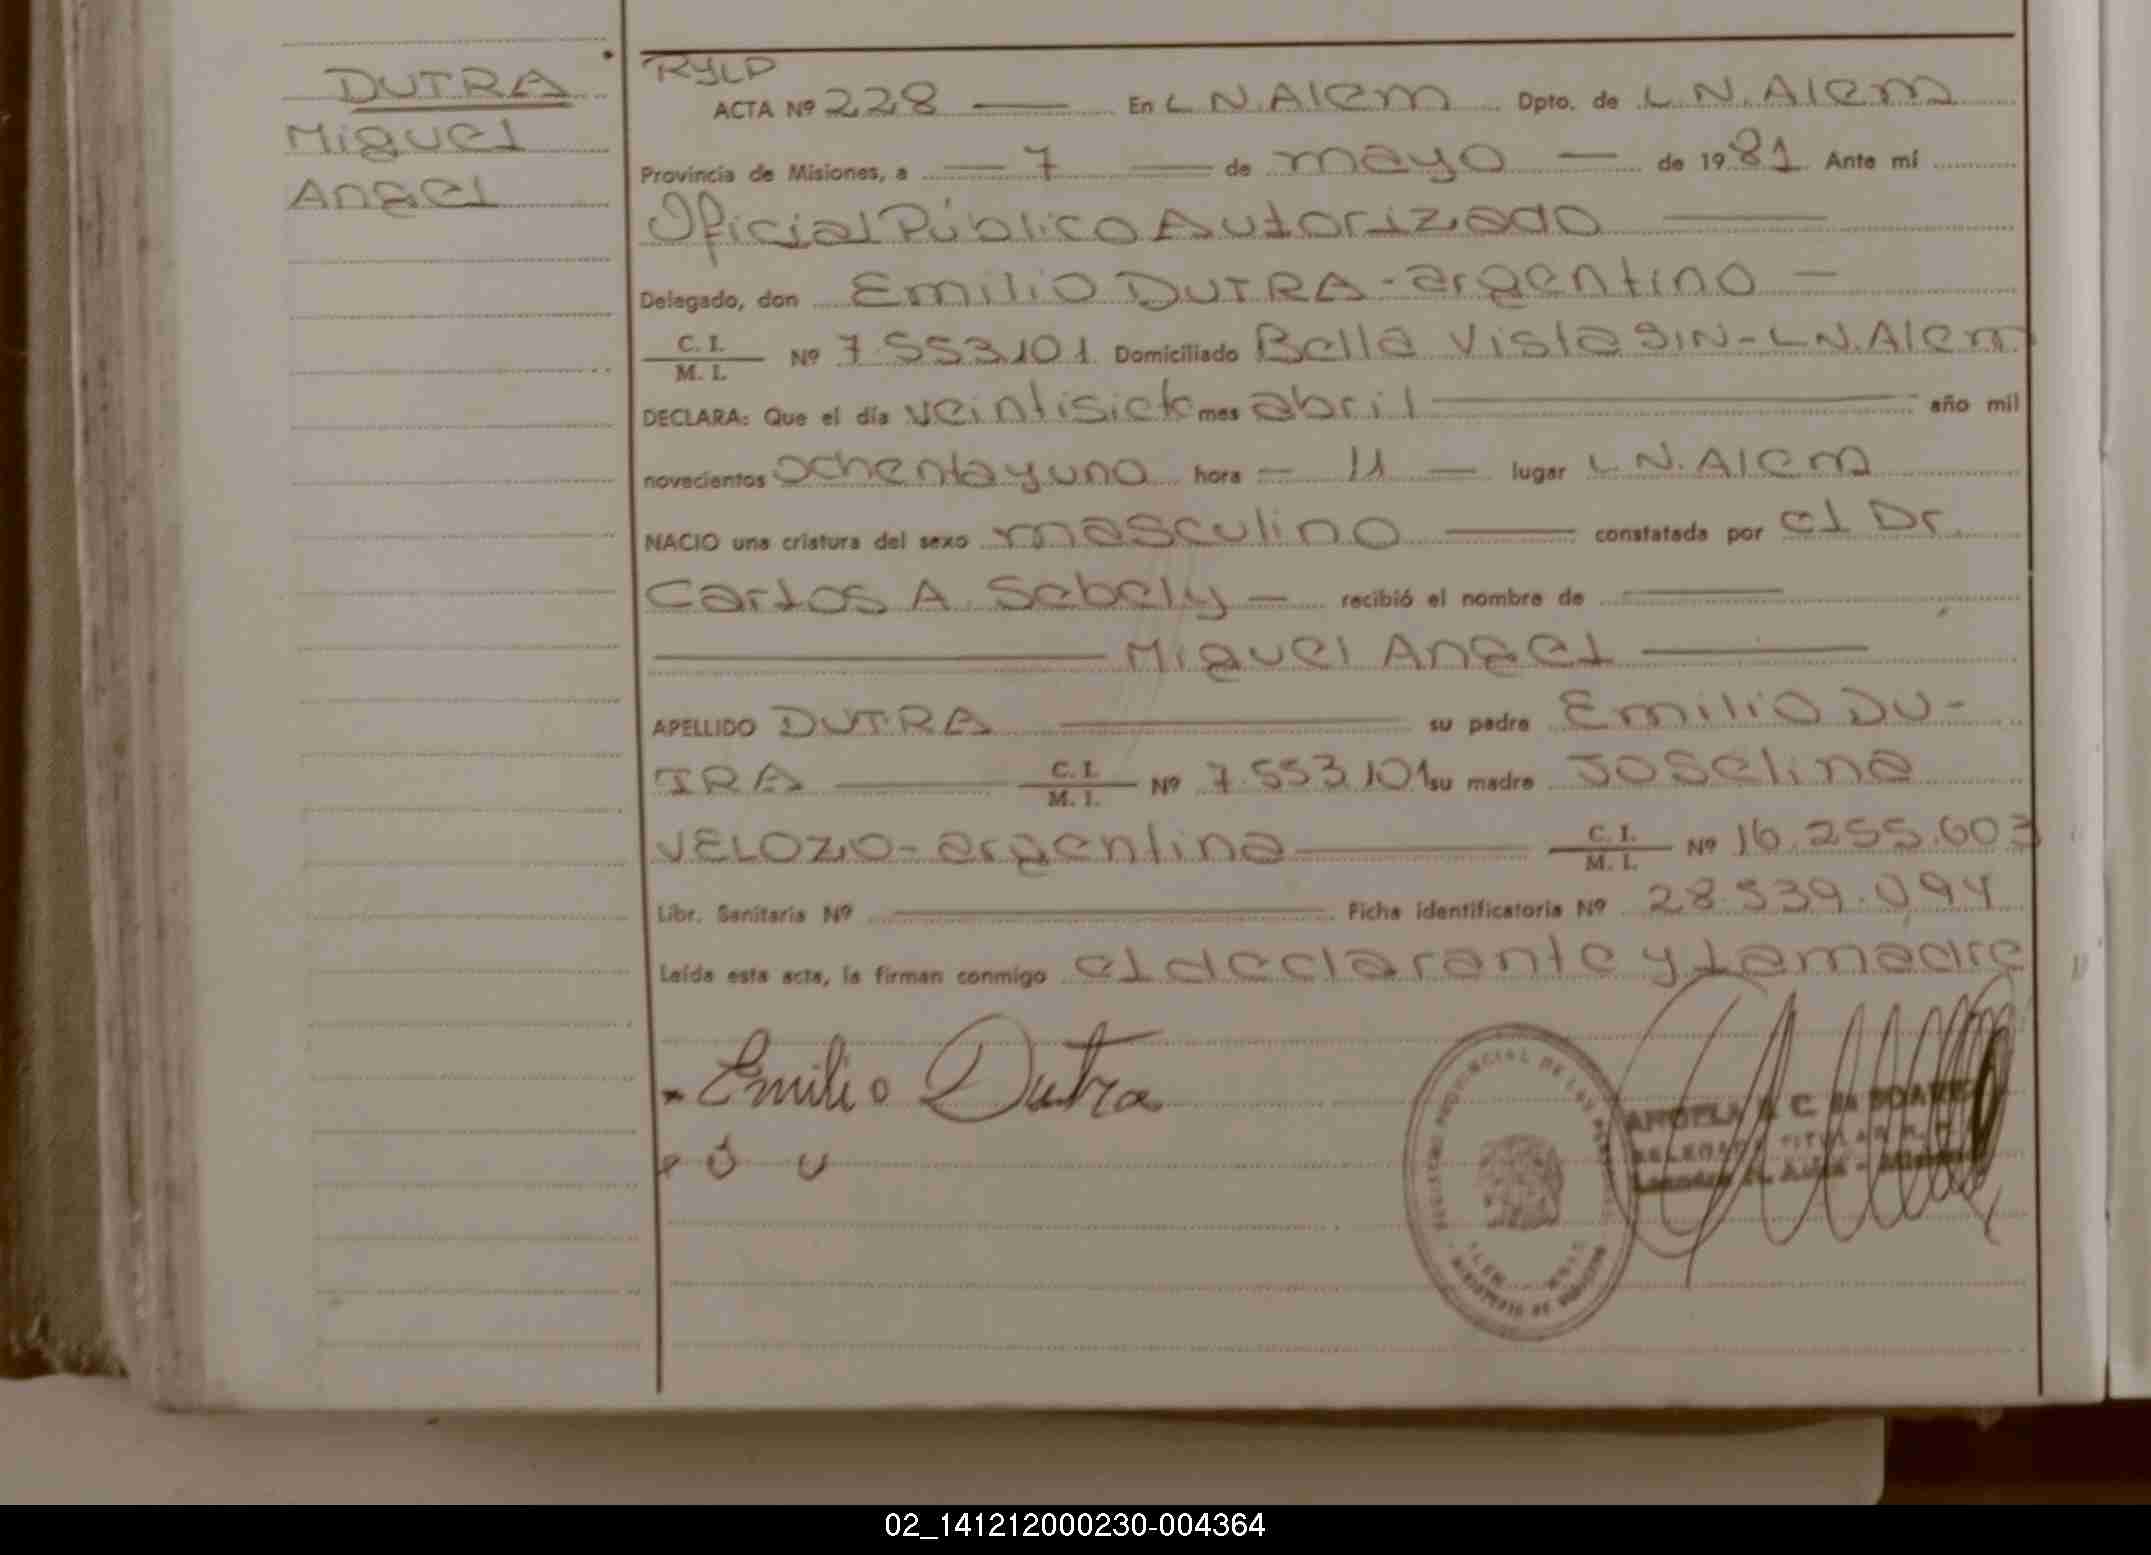 DUTRA
Miguel
Angel
RYLP
ACTA Nº 228 — En L N. Alem Dpto. de L N. Alem
Provincia de Misiones, a — 7 — de mayo — de 1981 Ante mí
Oficial Público Autorizado —
Delegado, don Emilio DUTRA - argentino —
C. I.
M. I. Nº 7.553.101 Domiciliado Bella Vista S/N - L N. Alem
DECLARA: Que el día veintisiete mes abril — año mil
novecientos ochenta y uno hora — 11 — lugar L N. Alem
NACIO una criatura del sexo masculino — constatada por el Dr.
Carlos A. Sebely — recibió el nombre de —
— Miguel Angel —
APELLIDO DUTRA — su padre Emilio DU-
TRA — C. I.
M. I. Nº 7.553.101 su madre Joselina
VELOZIO - argentina — C. I.
M. I. Nº 16.255.603
Libr. Sanitaria Nº — Ficha identificatoria Nº 28.539.094
Leída esta acta, la firman conmigo el declarante y la madre
Emilio Dutra
REGISTRO PROVINCIAL DE LAS PERSONAS
ANGELA C. SOARES
DELEGADA TITULAR
Leandro N. Alem - Misiones
02_141212000230-004364